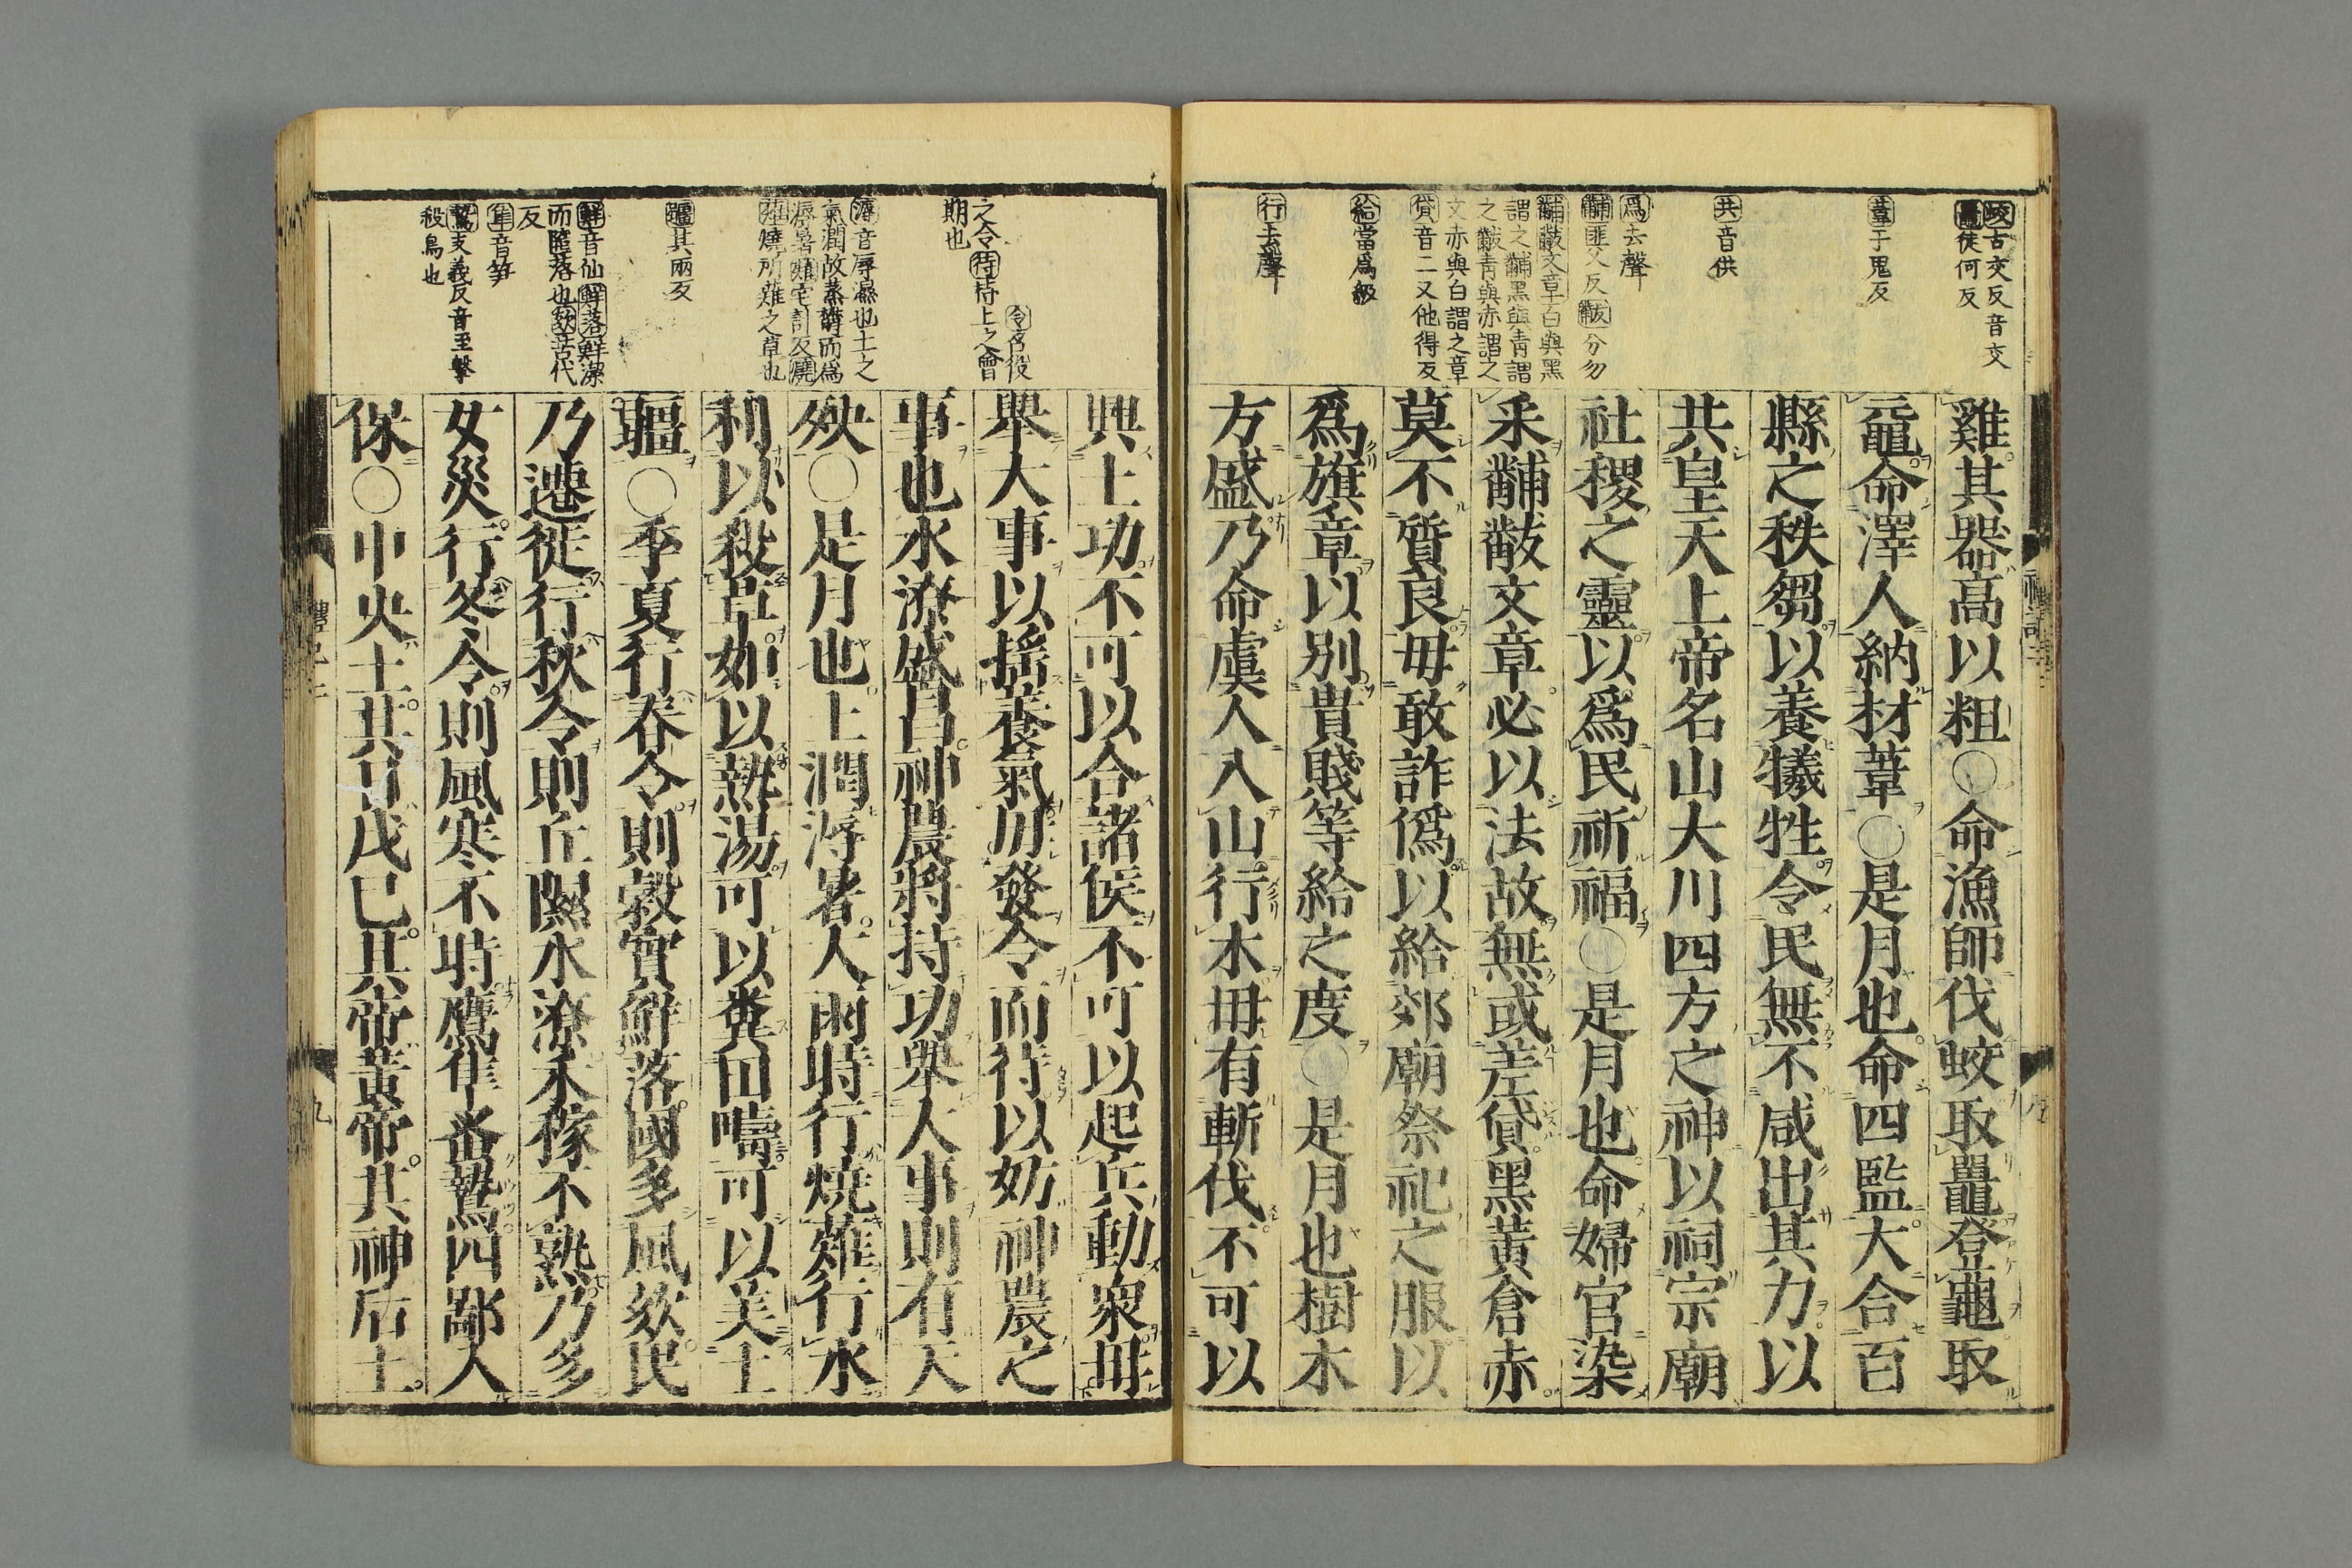 蛟古交反音交
鼉徒何反
葦于鬼反
共音供
爲去聲
黼匪父反黻分勿
黼黻文章白與黑
謂之黼黑與青謂
之黻青與赤謂之
文赤與白謂之章
貸音二又他得反
給當爲級
行去聲
雞其器高以粗○命漁師伐蛟取鼉登龜取
黿命澤人納材葦○是月也命四監大合百
縣之秩芻以養犧牲令民無不咸出其力以
共皇天上帝名山大川四方之神以祠宗廟
社稷之靈以爲民祈福○是月也命婦官染
采黼黻文章必以法故無或差貸黑黃倉赤
莫不質良毋敢詐僞以給郊廟祭祀之服以
爲旗章以別貴賤等給之度○是月也樹木
方盛乃命虞人入山行木毋有斬伐不可以
令召役
之令待待上之會
期也
溽音辱濕也土之
氣潤故蒸鬱而爲
溽暑薙宅計反燒
薙燒所薙之草也
疆其兩反
鮮音仙鮮落鮮潔
而隨落也欬苦代
反
隼音笋
鷙支義反音至擊
殺鳥也
興土功不可以合諸侯不可以起兵動衆毋
舉大事以搖養氣毋發令而待以妨神農之
事也水潦盛昌神農將持功舉大事則有天
殃○是月也土潤溽暑大雨時行燒薙行水
利以殺草如以熱湯可以糞田疇可以美土
疆○季夏行春令則穀實鮮落國多風欬民
乃遷徙行秋令則丘隰水潦禾稼不熟乃多
女災行冬令則風寒不時鷹隼蚤鷙四鄙入
保○中央土其日戊己其帝黃帝其神后土
禮記二
九